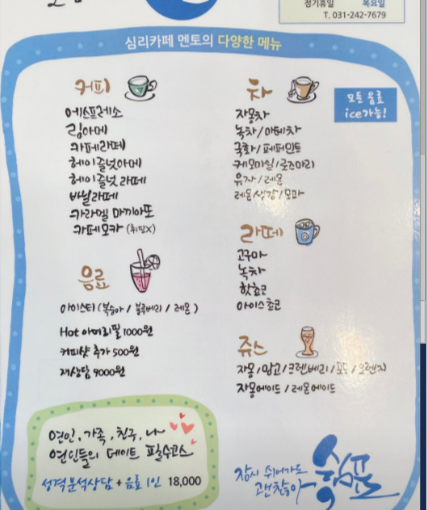 정기휴일 목요일
T. 031-242-7679
심리카페 멘토의 다양한 메뉴
커피
에스프레소
카페라떼
헤이즐넛 라떼
바닐라떼
카라멜 마끼아또
카페모카 (휘핑X)
음료
아이스티 (복숭아 / 블루베리 / 레몬)
Hot 아메리필 1000원
커피샷 추가 500원
재상담 9000원
차
모든 음료
ice가능!
자몽차
녹차 / 마테차
국화 / 페퍼민트
케모마일 / 로즈마리
유자 / 레몬
레몬생강 / 모과
라떼
고구마
녹차
핫초코
아이스 초코
쥬스
자몽 / 망고 / 크렌베리 / 포도 / 오렌지
자몽에이드 / 레몬에이드
연인, 가족, 친구, 나~
연인들의 데이트 필수코스
성격분석상담 + 음료 1인 18,000
잠시 쉬어가도
괜찮아
쉼표